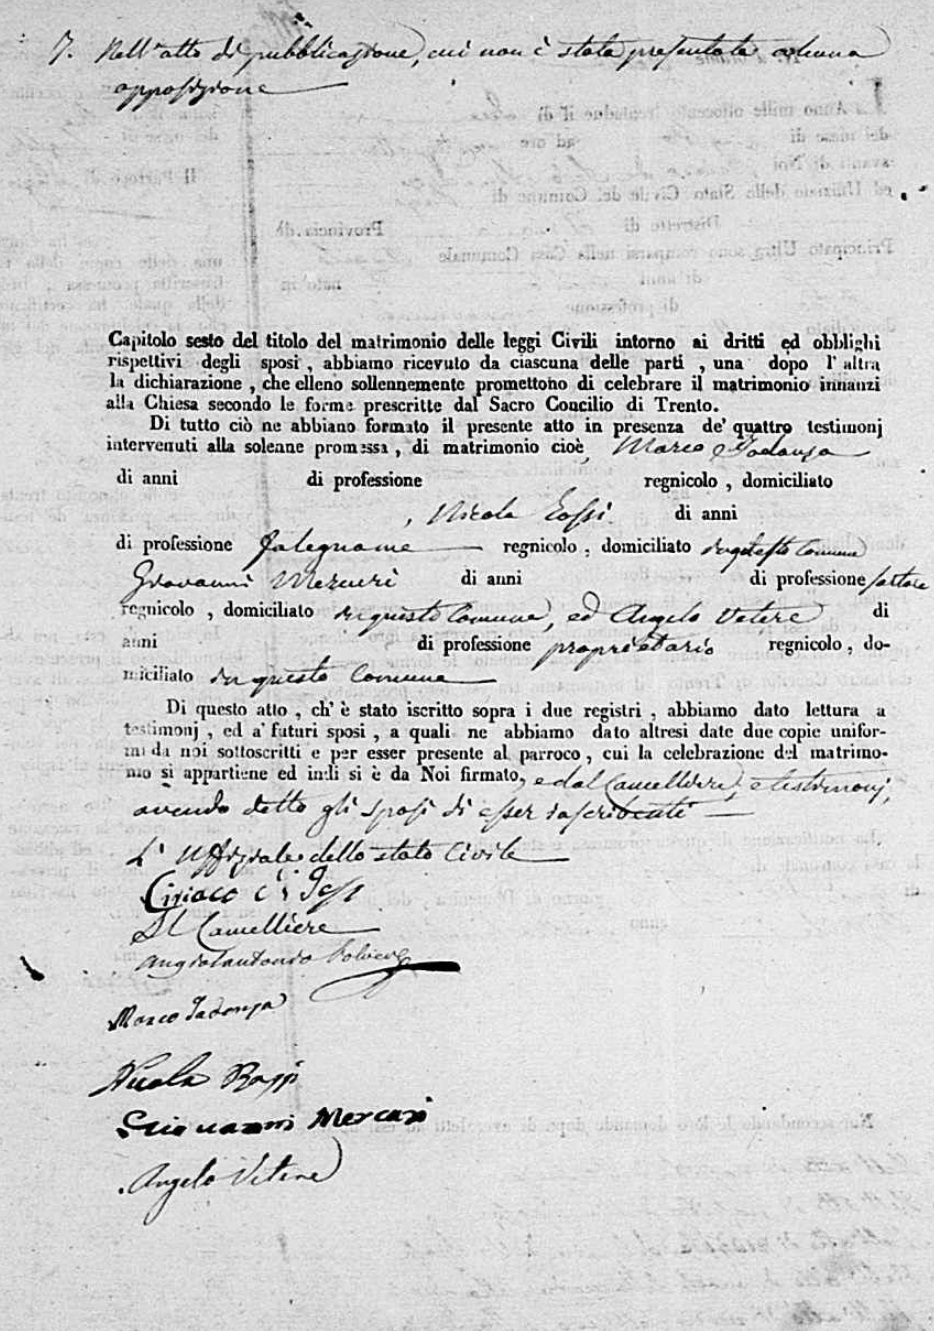 7. Nell'atto di pubblicazione, cui non è stata presentata alcuna
opposizione
Capitolo sesto del titolo del matrimonio delle leggi Civili intorno ai dritti ed obblighi
rispettivi degli sposi, abbiamo ricevuto da ciascuna delle parti, una dopo l'altra
la dichiarazione, che elleno sollennemente promettono di celebrare il matrimonio innanzi
alla Chiesa secondo le forme prescritte dal Sacro Concilio di Trento.
Di tutto ciò ne abbiano formato il presente atto in presenza de' quattro testimonj
intervenuti alla solenne promessa, di matrimonio cioè, Marco Iadanza
di anni di professione regnicolo, domiciliato
, Nicola Rossi di anni
di professione falegname regnicolo, domiciliato in questo Comune
Giovanni Mercuri di anni di professione sartore
regnicolo, domiciliato in questo Comune, ed Angelo Vetere di
anni di professione proprietario regnicolo, do-
miciliato in questo Comune
Di questo atto, ch' è stato iscritto sopra i due registri, abbiamo dato lettura a
testimonj, ed a' futuri sposi, a quali ne abbiamo dato altresi date due copie unifor-
mi da noi sottoscritti e per esser presente al parroco, cui la celebrazione del matrimo-
nio si appartiene ed indi si è da Noi firmato, e dal Cancelliere, e testimonj,
avendo detto gli sposi di esser inscribenti
L' Uffiziale dello stato Civile
Ciriaco
Il Cancelliere
Angiolantonio
Marco Iadanza
Nicola Rossi
Giovanni Mercuri
Angelo Vetere